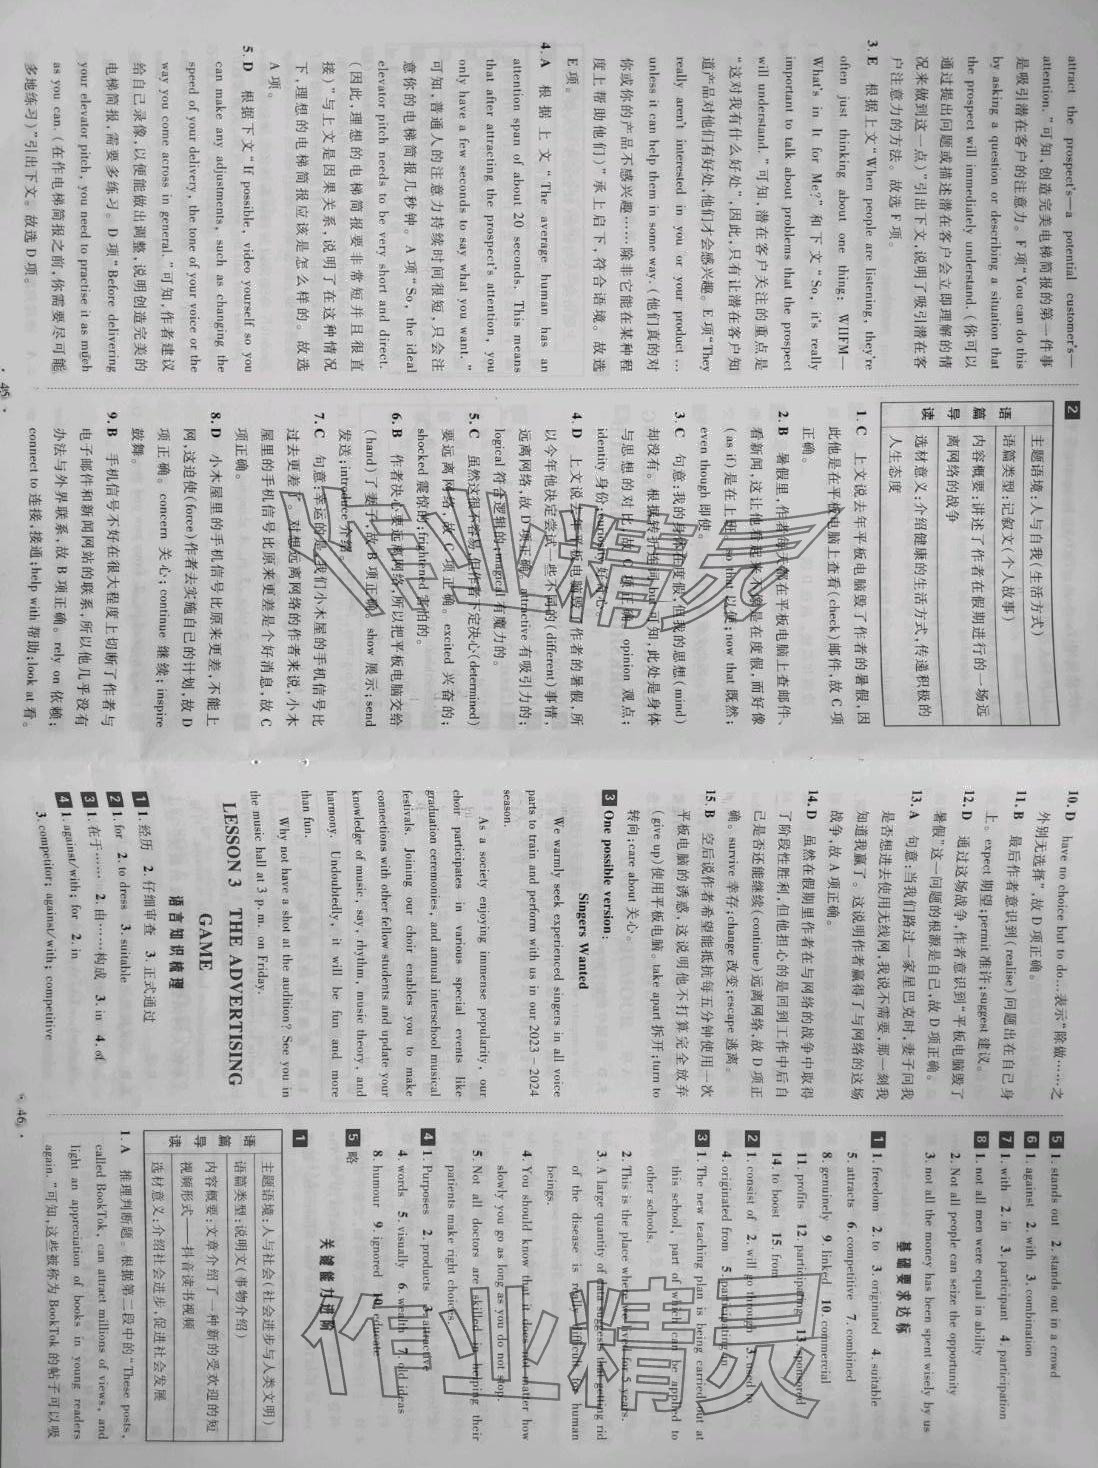 attract the prospect's—a potential customer's—
attention. "可知,创造完美电梯简报的第一件事
是吸引潜在客户的注意力。F 项"You can do this
by asking a question or describing a situation that
the prospect will immediately understand. (你可以
通过提出问题或描述潜在客户会立即理解的情
况来做到这一点)"引出下文,说明了吸引潜在客
户注意力的方法。故选 F 项。
3. E 根据上文"When people are listening, they're
often just thinking about one thing: WIIFM—
What's in It for Me?"和下文"So, it's really
important to talk about problems that the prospect
will understand. "可知,潜在客户关注的重点是
"这对我有什么好处",因此,只有让潜在客户知
道产品对他们有好处,他们才会感兴趣。E 项"They
really aren't interested in you or your product …
unless it can help them in some way. (他们真的对
你或你的产品不感兴趣……除非它能在某种程
度上帮助他们)"承上启下,符合语境。故选
E 项。
4. A 根据上文"The average human has an
attention span of about 20 seconds. This means
that after attracting the prospect's attention, you
only have a few seconds to say what you want. "
可知,普通人的注意力持续时间很短,只会注
意你的电梯简报几秒钟。A 项"So, the ideal
elevator pitch needs to be very short and direct.
(因此,理想的电梯简报要非常短并且很直
接)"与上文是因果关系,说明了在这种情况
下,理想的电梯简报应该是怎么样的。故选
A 项。
5. D 根据下文"If possible, video yourself so you
can make any adjustments, such as changing the
speed of your delivery, the tone of your voice or the
way you come across in general. "可知,作者建议
给自己录像,以便能做出调整,说明创造完美的
电梯简报,需要多练习。D 项"Before delivering
your elevator pitch, you need to practise it as much
as you can. (在作电梯简报之前,你需要尽可能
多地练习)"引出下文。故选 D 项。
2
语篇导读
主题语境:人与自我(生活方式)
语篇类型:记叙文(个人故事)
内容概要:讲述了作者在假期进行的一场远
离网络的战争
选材意义:介绍健康的生活方式,传递积极的
人生态度
1. C 上文说去年平板电脑毁了作者的暑假,因
此他是在平板电脑上查看(check)邮件,故 C 项
正确。
2. B 暑假里,作者每天都在平板电脑上查邮件、
看新闻,这让他看起来不像是在度假,而好像
(as if)是在上班。so that 以便;now that 既然;
even though 即使。
3. C 句意:我的身体在度假,但我的思想(mind)
却没有。根据转折连词 but 可知,此处是身体
与思想的对比,故 C 项正确。opinion 观点;
identity 身份;curiosity 好奇心。
4. D 上文说去年平板电脑毁了作者的暑假,所
以今年他决定尝试一些不同的(different)事情,
远离网络,故 D 项正确。attractive 有吸引力的;
logical 符合逻辑的;magical 有魔力的。
5. C 虽然这很不容易,但作者下定决心(determined)
要远离网络,故 C 项正确。excited 兴奋的;
shocked 震惊的;frightened 害怕的。
6. B 作者决心要远离网络,所以把平板电脑交给
(hand)了妻子,故 B 项正确。show 展示;send
发送;introduce 介绍。
7. C 句意:幸运的是,我们小木屋的手机信号比
过去更差。对想远离网络的作者来说,小木
屋里的手机信号比原来更差是个好消息,故 C
项正确。
8. D 小木屋里的手机信号比原来更差,不能上
网,这迫使(force)作者去实施自己的计划,故 D
项正确。concern 关心;continue 继续;inspire
鼓舞。
9. B 手机信号不好在很大程度上切断了作者与
电子邮件和新闻网站的联系,所以他几乎没有
办法与外界联系,故 B 项正确。rely on 依赖;
connect to 连接,接通;help with 帮助;look at 看。
· 45 ·
10. D have no choice but to do…表示"除做……之
外别无选择",故 D 项正确。
11. B 最后作者意识到(realise)问题出在自己身
上。expect 期望;permit 准许;suggest 建议。
12. D 通过这场战争,作者意识到"平板电脑毁了
暑假"这一问题的根源是自己,故 D 项正确。
13. A 句意:当我们路过一家星巴克时,妻子问我
是否想进去使用无线网,我说不需要,那一刻我
知道我赢了。这说明作者赢得了与网络的这场
战争,故 A 项正确。
14. D 虽然在假期里作者在与网络的战争中取得
了阶段性胜利,但他担心的是回到工作中后自
己是否还能继续(continue)远离网络,故 D 项正
确。survive 幸存;change 改变;escape 逃离。
15. B 空后说作者希望能抵抗每五分钟使用一次
平板电脑的诱惑,这说明他不打算完全放弃
(give up)使用平板电脑。take apart 拆开;turn to
转向;care about 关心。
3 One possible version:
Singers Wanted
We warmly seek experienced singers in all voice
parts to train and perform with us in our 2023－2024
season.
As a society enjoying immense popularity, our
choir participates in various special events like
graduation ceremonies, and annual interschool musical
festivals. Joining our choir enables you to make
connections with other fellow students and update your
knowledge of music, say, rhythm, music theory, and
harmony. Undoubtedly, it will be fun and more
than fun.
Why not have a shot at the audition? See you in
the music hall at 3 p. m. on Friday.
LESSON 3 THE ADVERTISING
GAME
语言知识梳理
1 1. 经历 2. 仔细审查 3. 正式通过
2 1. for 2. to dress 3. suitable
3 1. 在于…… 2. 由……构成 3. in 4. of
4 1. against/with; for 2. in
3. competitor; against/with; competitive
5 1. stands out 2. stands out in a crowd
6 1. against 2. with 3. combination
7 1. with 2. in 3. participant 4. participation
8 1. not all men were equal in ability
2. Not all people can seize the opportunity
3. not all the money has been spent wisely by us
基础要求达标
1 1. freedom 2. to 3. originated 4. suitable
5. attracts 6. competitive 7. combined
8. genuinely 9. linked 10. commercial
11. profits 12. participating 13. sponsored
14. to boost 15. from
2 1. consist of 2. will go through 3. used to
4. originated from 5. participating in
3 1. The new teaching plan is being carried out at
this school, part of which can be applied to
other schools.
2. This is the place where we lived for 5 years.
3. A large quantity of data suggests that getting rid
of the disease is really difficult for human
beings.
4. You should know that it does not matter how
slowly you go as long as you do not stop.
5. Not all doctors are skilled in helping their
patients make right choices.
4 1. Purposes 2. products 3. attractive
4. words 5. visually 6. wealth 7. old ideas
8. humour 9. ignored 10. educate
5 略
关键能力进阶
1
语篇导读
主题语境:人与社会(社会进步与人类文明)
语篇类型:说明文(事物介绍)
内容概要:文章介绍了一种新的受欢迎的短
视频形式——抖音读书视频
选材意义:介绍社会进步,促进社会发展
1. A 推理判断题。根据第二段中的"These posts,
called BookTok, can attract millions of views, and
light an appreciation of books in young readers
again. "可知,这些被称为 BookTok 的帖子可以吸
· 46 ·
作业精灵
作业精灵